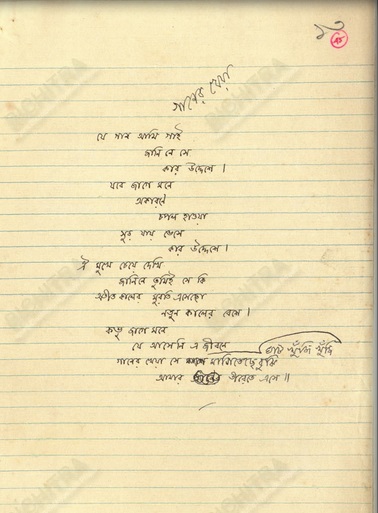 ১৩
গানের খেয়া
যে গান আমি গাই
জানি নে সে
কার উদ্দেশে।
যবে জাগে মনে
অকারণে
চপল হাওয়া
সুর যায় ভেসে
কার উদ্দেশে।
ঐ মুখে চেয়ে দেখি
জানিনে তুমিই সে কি
অতীত কালের মুরতি এসেছো
নতুন কালের বেশে।
কভু জাগে মনে
যে আসেনি এ জীবনে
ঘাট খুঁজি খুঁজি
গানের খেয়া সে মাগিতেছে বুঝি
আমার তীরেতে এসে॥
BICHITRA